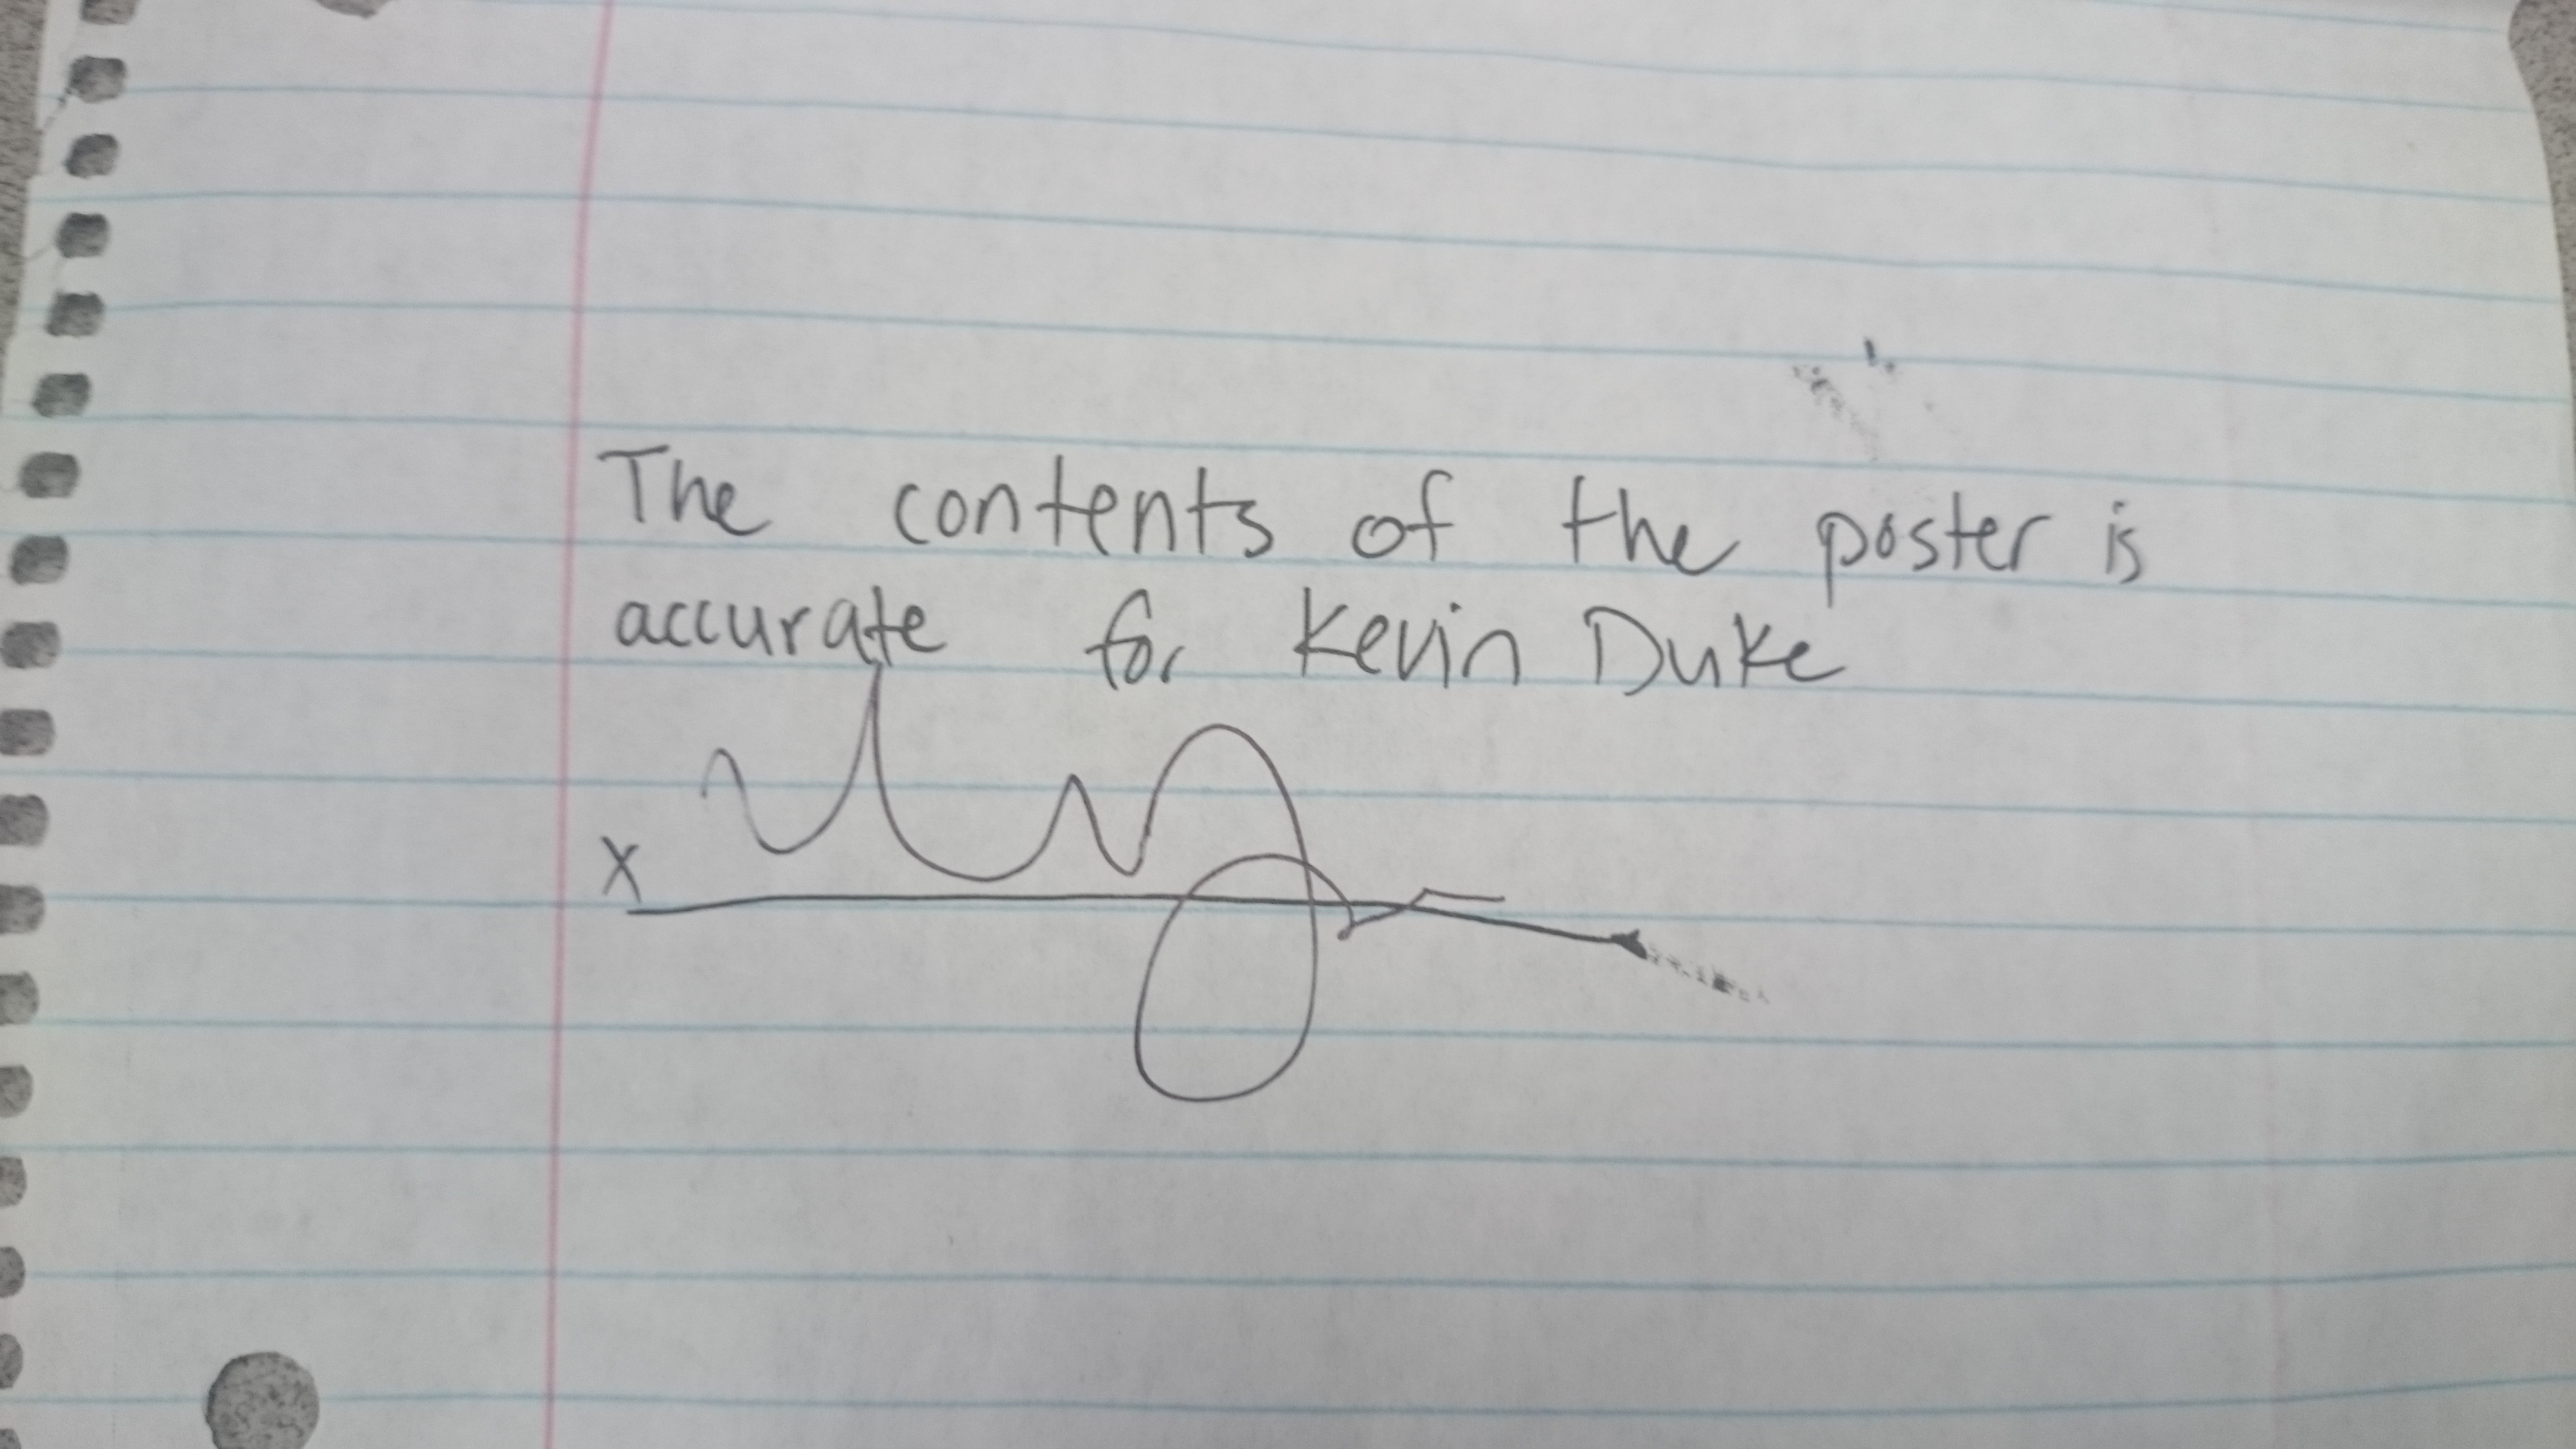 The contents of the poster is
accurate for Kevin Duke
X